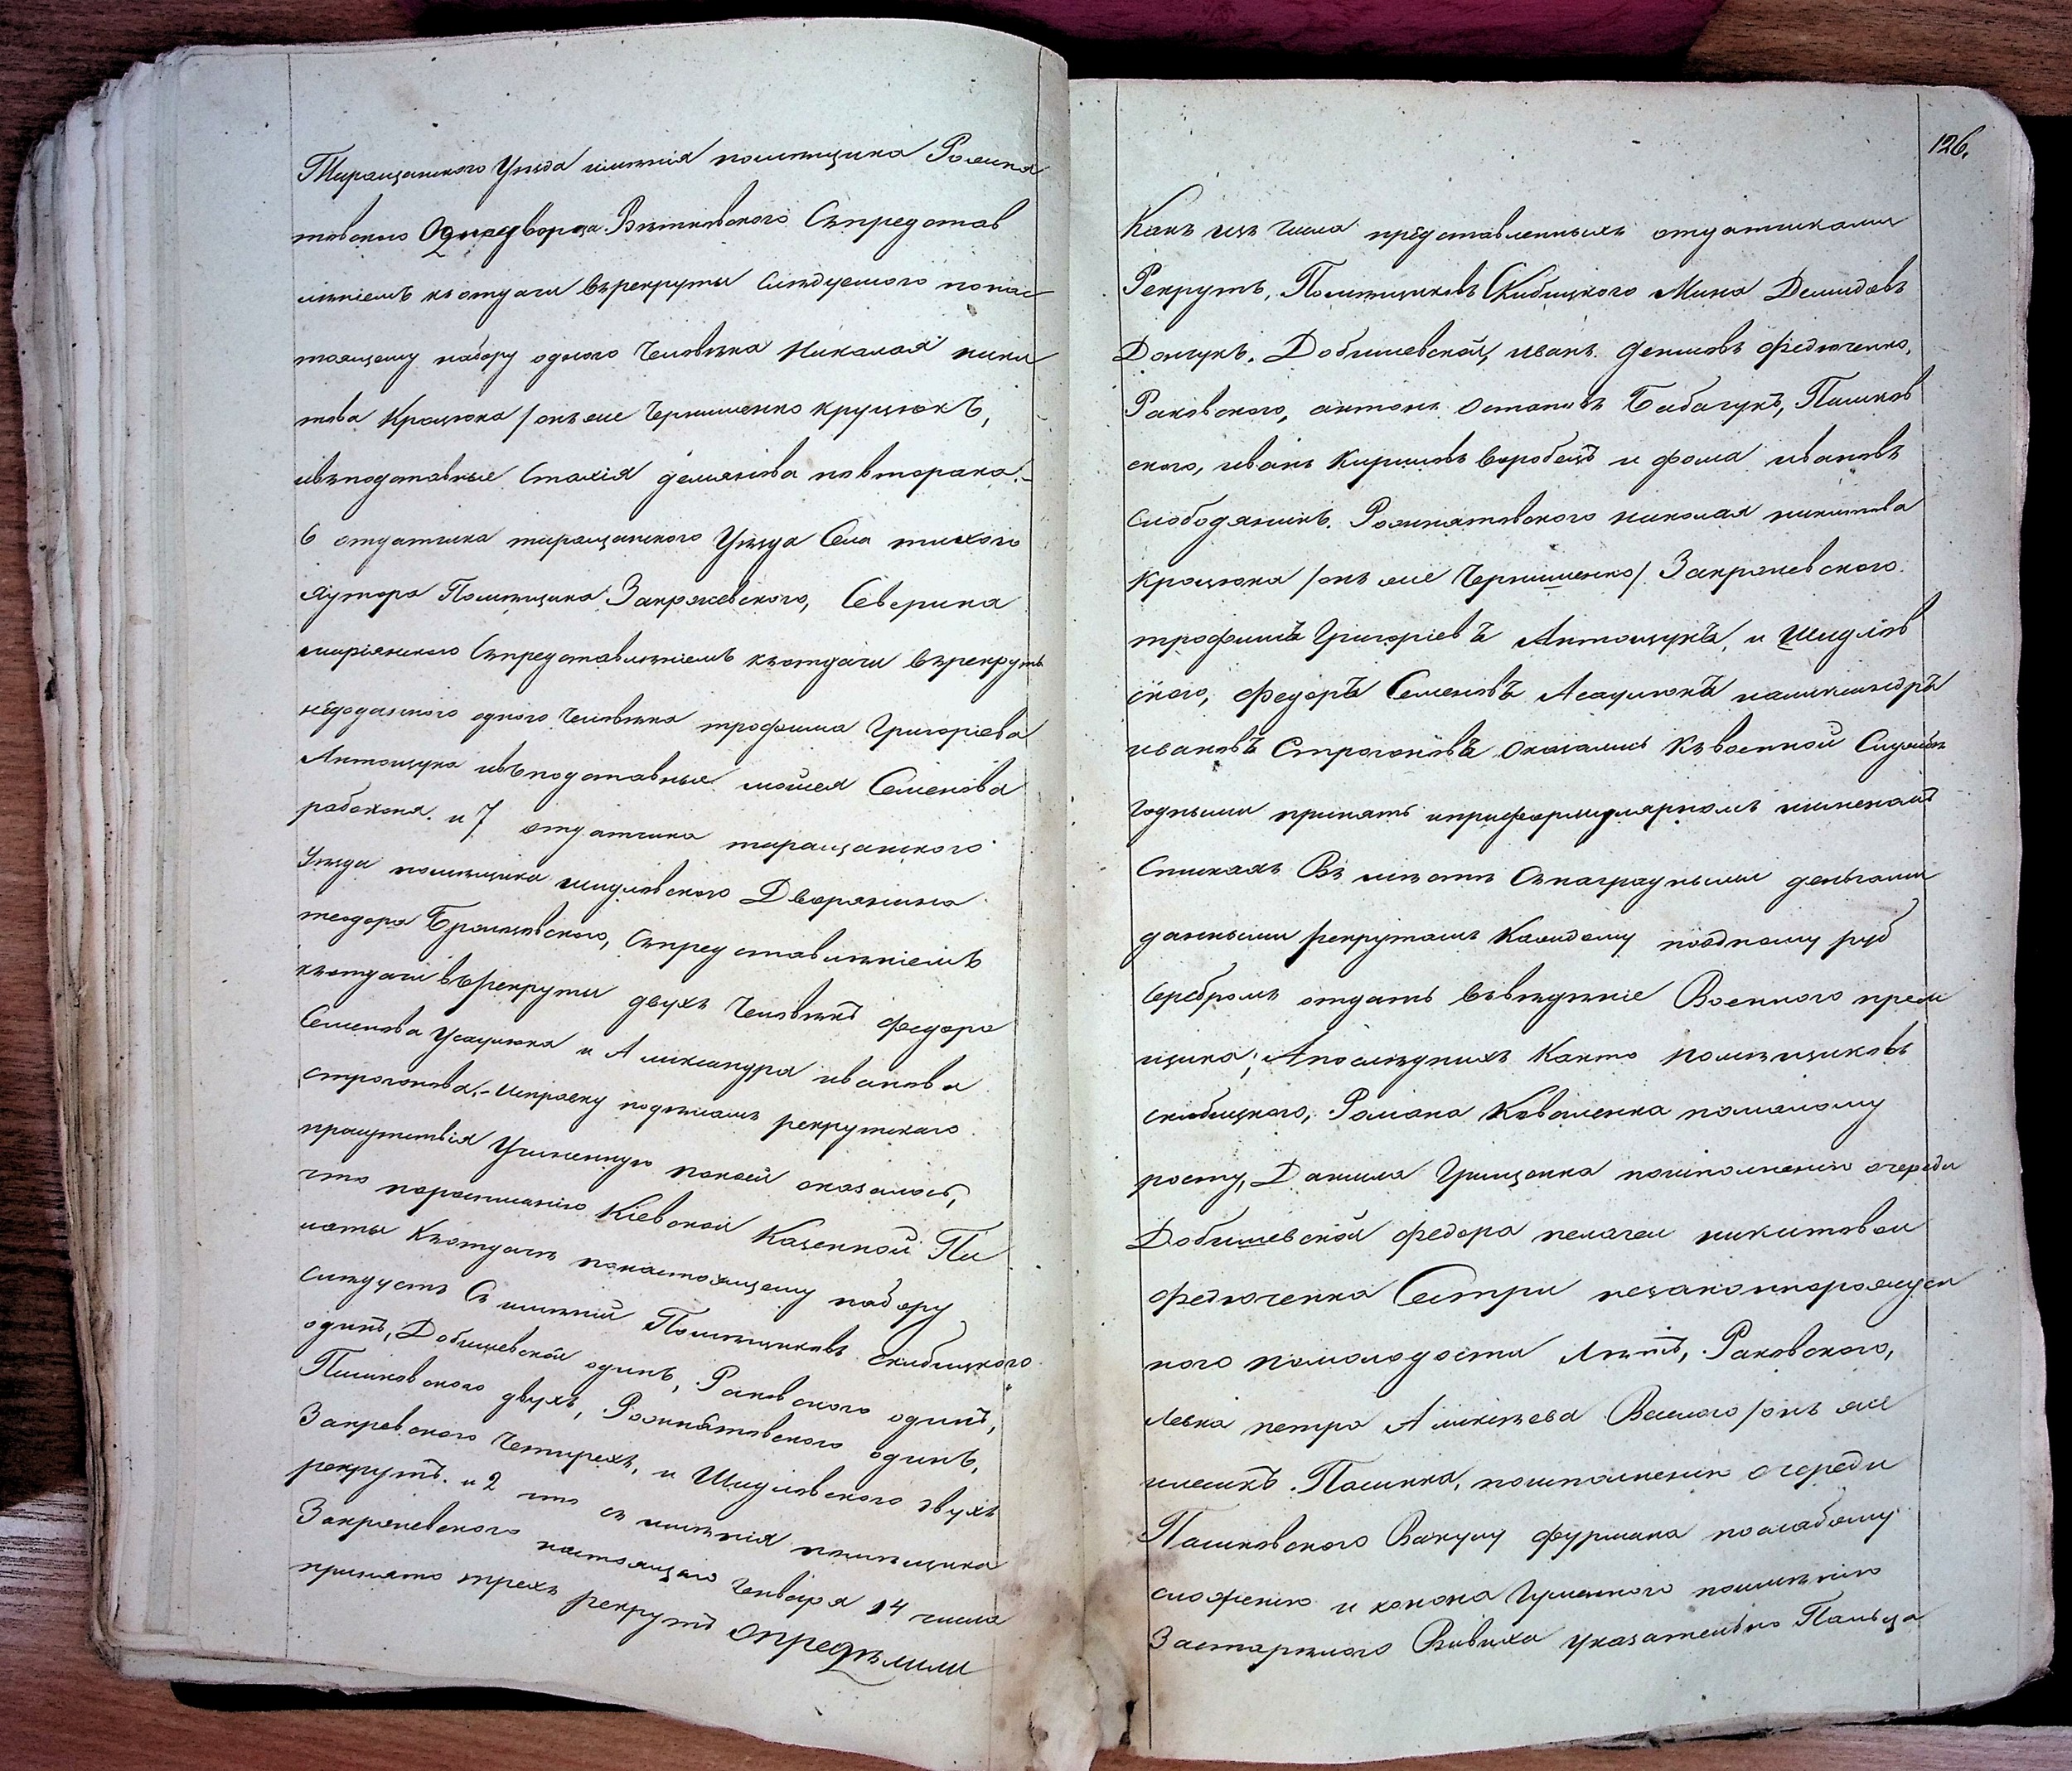 Таращанского Уѣзда имѣнія помѣщика Рожня
товского Однодворца Витковского Съпредстав
лѣніемъ къотдачи върекруты Слѣдуемого понас
тоящему набору одного Человѣка Николая ники
това Крацюка /онъ же Чернишенко Круцюкъ,
ивъподставные Стахія демянова повторака.-
6 отдатчика таращанского Уѣзда Села тихого
Хутора Помѣщика Закржевского, Северина
маріянского Съпредставлѣніемъ къотдачи върекрутъ
недоданного одного Человѣка трофима Григоріева
Антощука ивъподставные мойсея Семенова
рабоконя. и 7 отдатчика таращанского
Уѣзда помѣщика шидловского Дворянина
теодора Бромировского, Съпредставлѣніемъ
къотдачи въРекруты двухъ Человѣкъ федора
Семенова Усацюка и Александра иванова
строгонова.- исправку подѣламъ рекрутского
працутствія Учиненную показей оказалось,
что порасписанію Кіевской Казенной Па
латы Къотдачѣ понастоящему набору
слѣдуетъ Съ имѣній Помѣщиковъ скибицкого
одинъ, Добишевской одинъ, Раковского одинъ,
Пашковского двухъ, Рожнятовского одинъ,
Закревского Четырехъ, и Шидловского двухъ
рекрутъ. и 2 что съ имѣнія помѣщика
Закржевского настоящаго Генваря 14 числа
принято трехъ рекрутъ опредѣлили
126.
Какъ изъ числа представленныхъ отдатчиками
Рекрутъ, Помѣщиковъ Скибицкого Мина Демидовъ
Дончукъ. Добишевской, иванъ денисовъ федюченко,
Раковского, антонъ Остаповъ Бабачукъ, Пашков
ского, иванъ Кириловъ воробецъ и фома ивановъ
слободяникъ. Рожнятовского николая никитова
Крацюка /онъ же Чернишенко/ Закржевского
трофимъ Григоріевъ Антощукъ, и Шидлов
ского, федоръ Семеновъ Асацюкъ иалександръ
ивановъ Строгоновъ оказались Къвоенной Службѣ
годными принять иприформулярномъ имененомъ
Спискахъ Въ мѣстѣ Снаградными деньгами
данными рекрутамъ Каждому поодному руб
Серебромъ отдать въвѣденіе Военного прiем
щика; Апослѣднихъ Както помѣщиковъ
скибицкого, Романа Коваленка помалому
росту, Данила Грищенка поисполненію очереди
Добишевской федора пелагеи никитовой
федюченка Сестри незаконнорожден
ного помолодости лѣтъ, Раковского,
Левка петра Алексѣева Велмого /онъ же
Пашинка, поисполненію очереди
Пашковского Вакулу фурмана послабому
сложенію и конона Гуменного поимѣнію
Застарѣлого Вивиха указательно Пальца